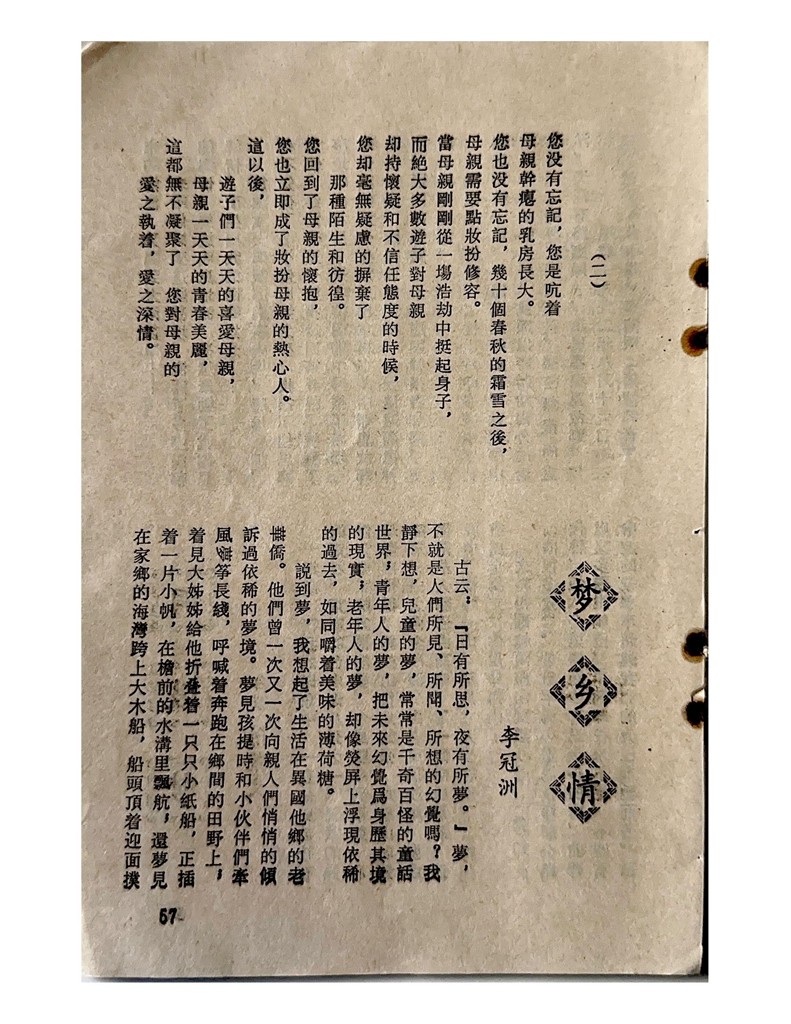 (二)
您没有忘記，您是吭着
母親幹癟的乳房長大。
您也没有忘記，幾十個春秋的霜雪之後，
母親需要點妝扮修容。
當母親剛剛從一塲浩劫中挺起身子，
而絶大多數遊子對母親
却持懷疑和不信任態度的時候，
您却毫無疑慮的摒棄了
那種陌生和彷徨。
您回到了母親的懷抱，
您也立即成了妝扮母親的熱心人。
這以後，
遊子們一天天的喜愛母親，
母親一天天的青春美麗，
這都無不凝聚了　您對母親的
愛之執着，愛之深情。
梦乡情
李冠洲
古云；『日有所思，夜有所夢。』夢，
不就是人們所見、所聞、所想的幻覺嗎？我
靜下想，兒童的夢，常常是千奇百怪的童話
世界；青年人的夢，把未來幻覺爲身歷其境
的現實；老年人的夢，却像熒屏上浮現依稀
的過去，如同嚼着美味的薄荷糖。
説到夢，我想起了生活在異國他鄉的老
華僑。他們曾一次又一次向親人們悄悄的傾
訴過依稀的夢境。夢見孩提時和小伙伴們牽
風筝長綫，呼喊着奔跑在鄉間的田野上；
着見大姊姊給他折叠着一只只小紙船，正插
着一片小帆，在檐前的水溝里飄航；還夢見
在家鄉的海灣跨上大木船，船頭頂着迎面撲
57